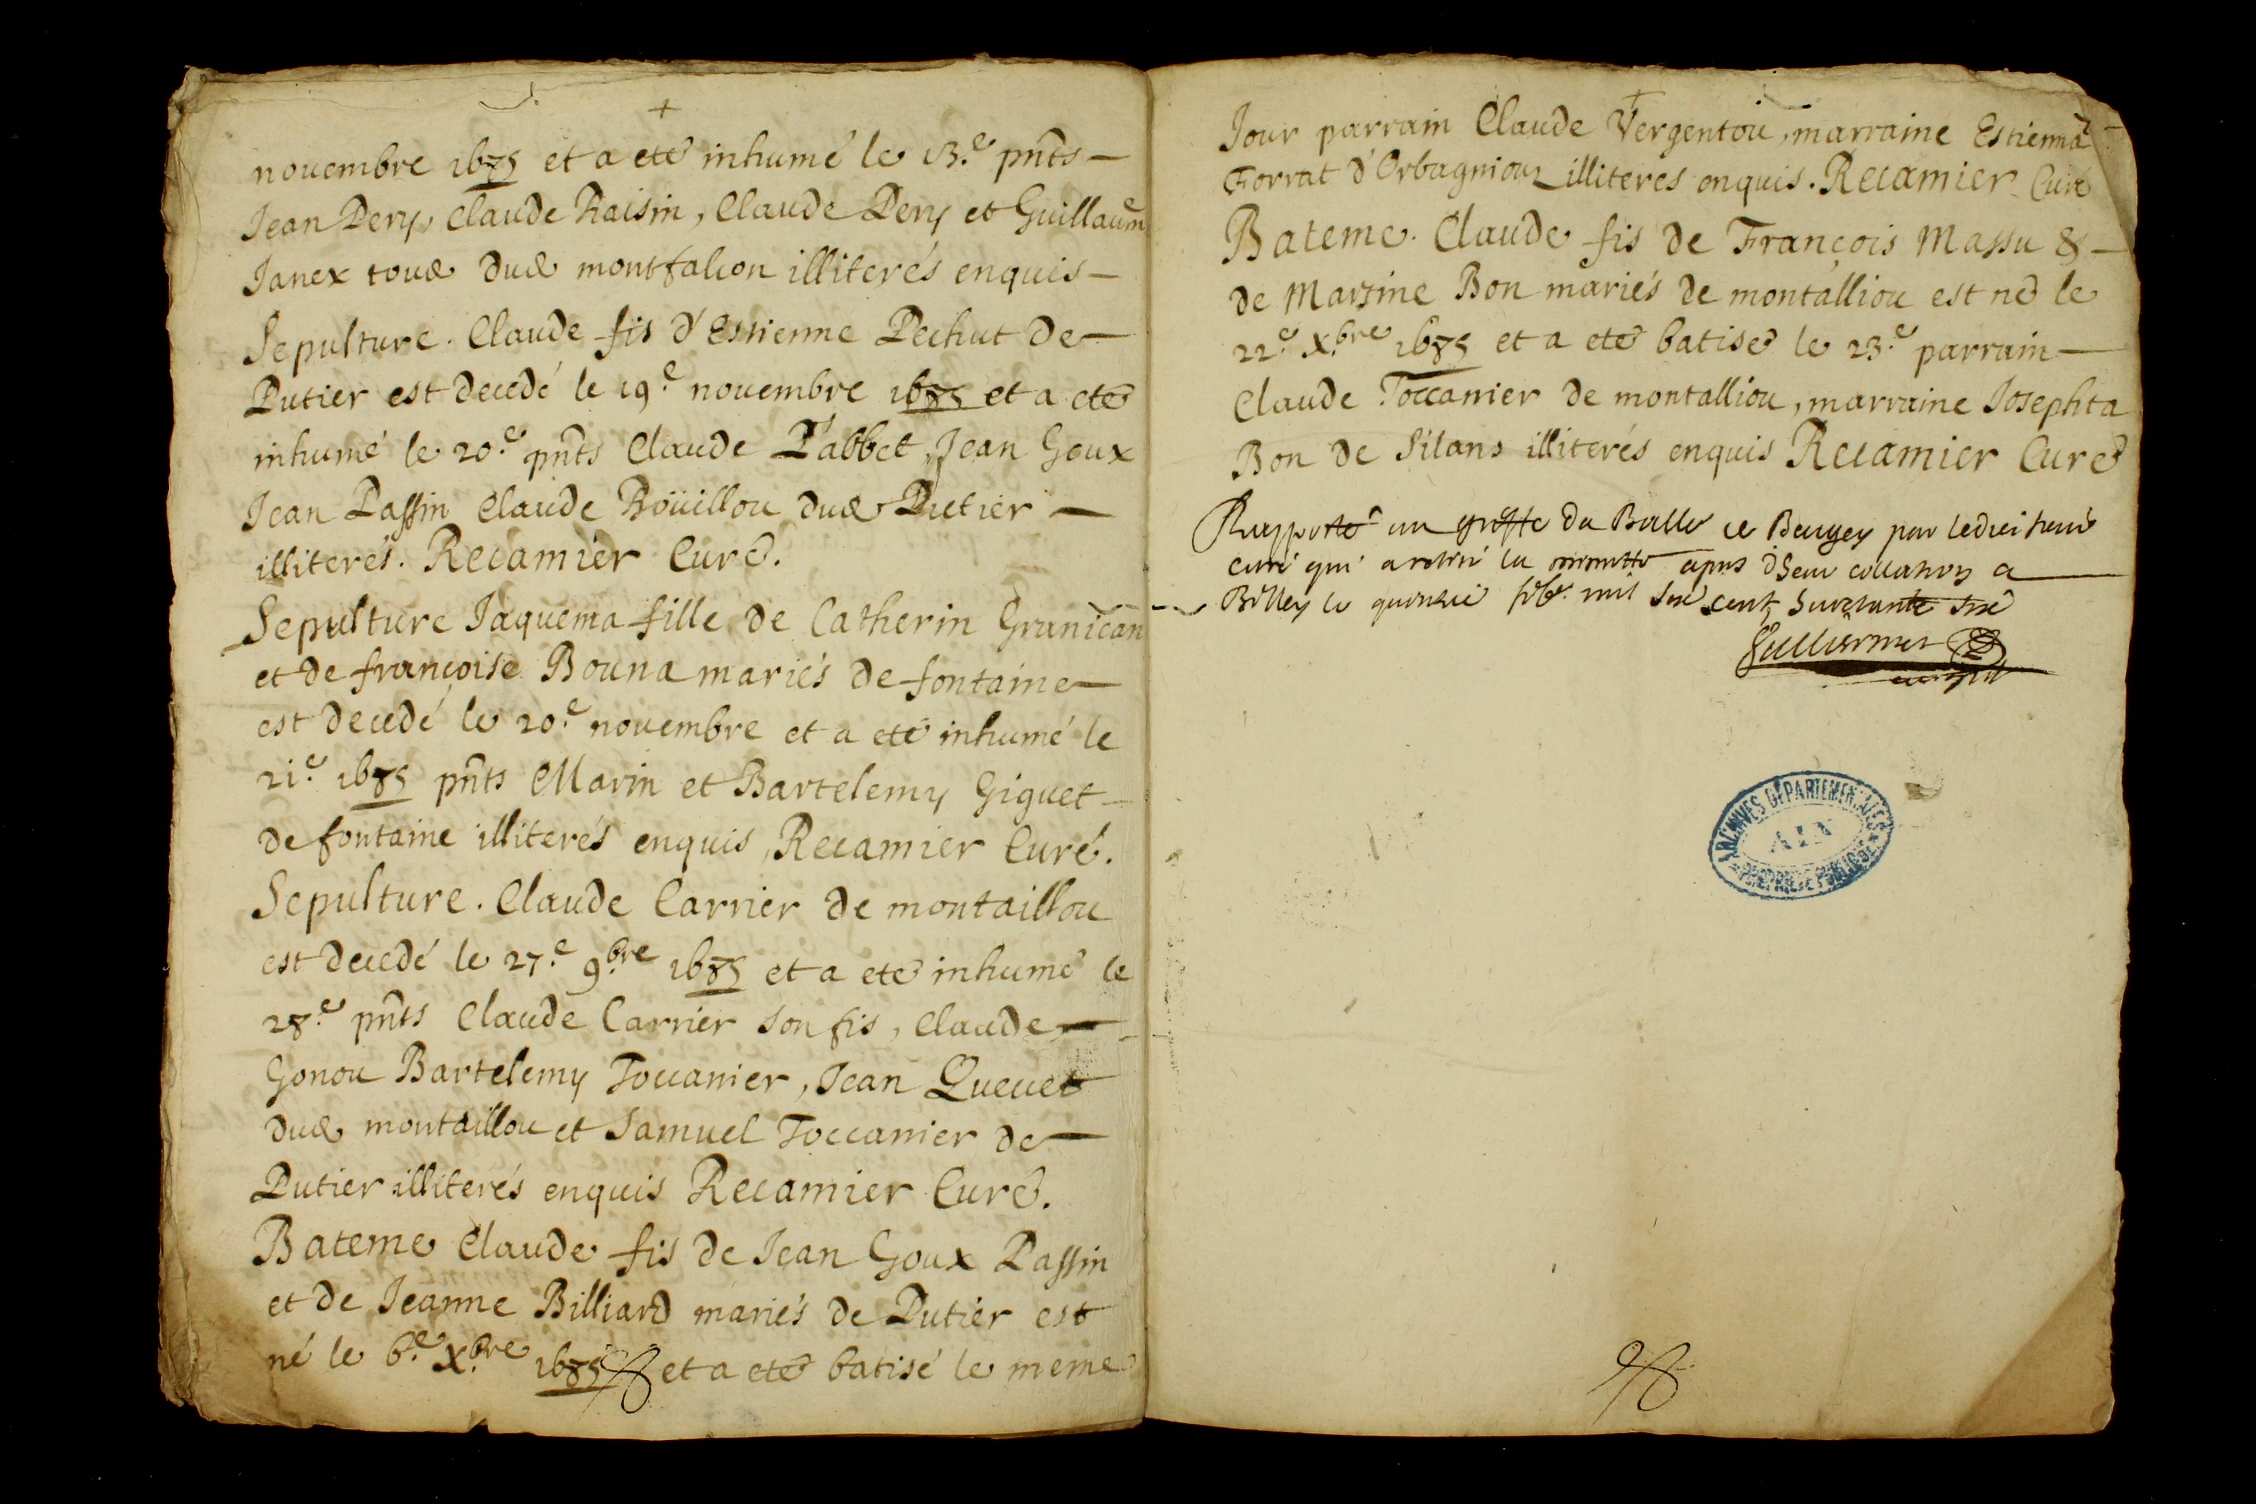 novembre 1675 et a eté inhumé le 13.e pnts
Jean Pery, Claude Raisin, Claude Pery et Guillaum
Janex tous dud montfalcon illiterés enquis
Sepulture. Claude fis d'Estienne Pechut de
Putier est decedé le 19.e novembre 1675 et a eté
inhumé le 20.e pnts Claude Pabbet, Jean Goux
Jean Passin Claude Boüillou dud Putier
illiterés. Recamier Curé.
Sepulture Jaquema fille de Catherin Granican
et de françoise Bouna mariés de fontaine
est decedé le 20.e novembre et a eté inhumé le
21.e 1675 pnts Marin et Bartelemy Giguet
de fontaine illiterés enquis, Recamier Curé.
Sepulture. Claude Carrier de montaillou
est decedé le 27.e 9.bre 1675 et a eté inhumé le
28.e pnts Claude Carrier son fis, Claude
Gonou Bartelemy Toccanier, Jean Quevet
dud montaillou et Samuel Toccanier de
Putier illiterés enquis Recamier Curé.
Bateme Claude fis de Jean Goux Passin
et de Jeanne Billiard mariés de Putier est
né le 6.e X.bre 1675 et a eté batisé le meme
Jour parrain Claude Vergentou, marraine Estienna
Forrat d'Orbagnioux illiteres enquis. Recamier Curé
Bateme. Claude fis de François Massu &
de Marzine Bon mariés de montalliou est né le
22.e X.bre 1675 et a eté batisé le 23.e parrain
Claude Toccanier de montalliou, marraine Josephta
Bon de Silans illiterés enquis Recamier Curé
Rapporté au greffe du Balle de Beugey par ledict sieur
curé qui a retiré la minutte apres collation a
Belley le quinzie mil six cent septante six
Gulliermet
ARCHIVES DÉPARTEMENTALES
AIN
PROPRIÉTÉ PUBLIQUE